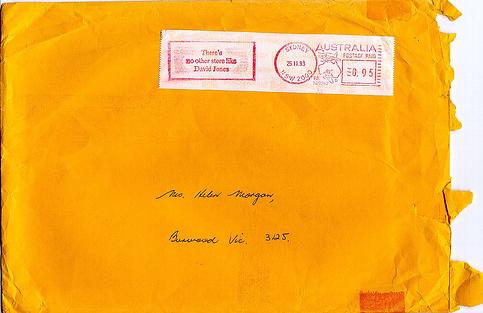 There's
no other store like
David Jones
SYDNEY
25.11.93
NSW 2000
AUSTRALIA
POSTAGE PAID
0.95
Ms. Helen Morgan,
Burwood Vic. 3125.